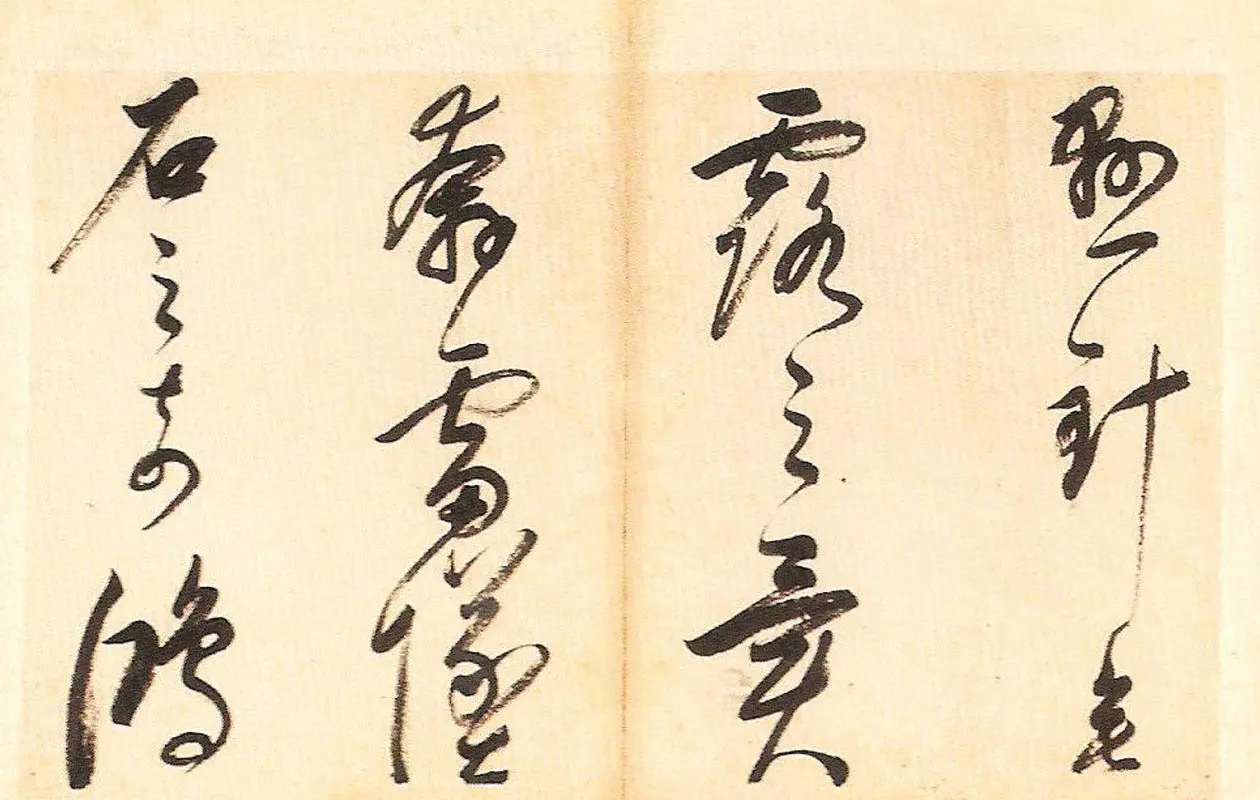 懸針垂
露之異
奔雷墜
石之奇鴻